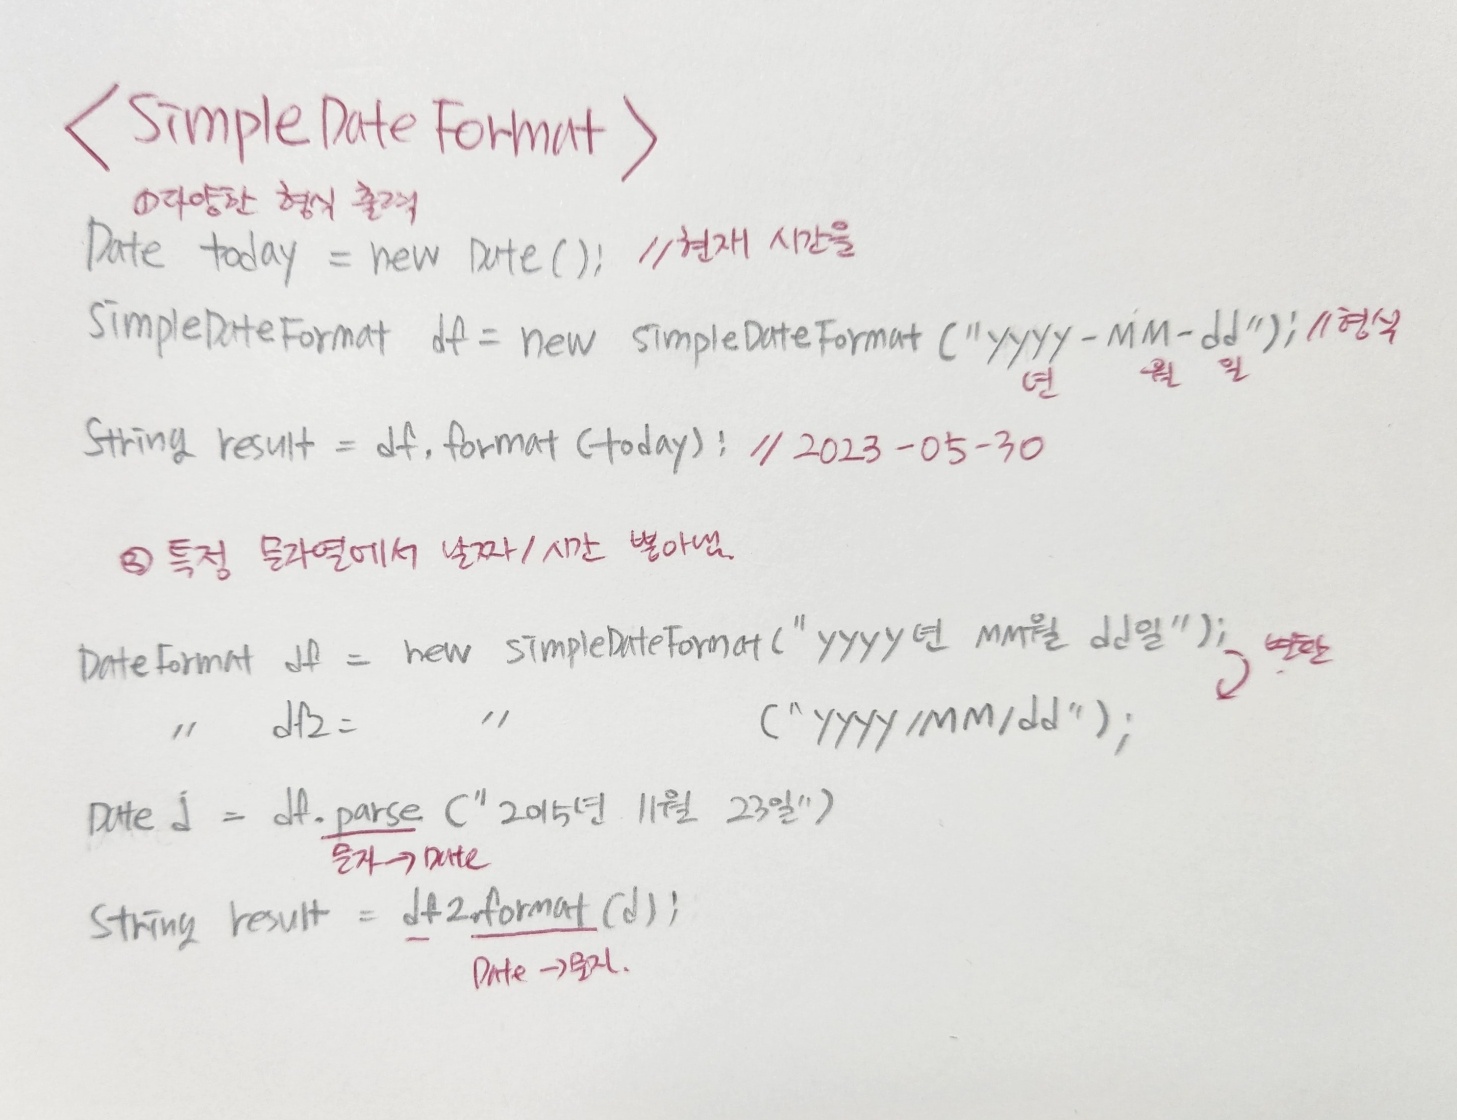 <SimpleDateFormat>
①다양한 형식 출력
Date today = new Date(); //현재 시간을
SimpleDateFormat df = new simpleDateFormat("yyyy-MM-dd"); //형식
년 월 일
String result = df.format(today); // 2023-05-30
② 특정 문자열에서 날짜/시간 뽑아냄.
DateFormat df = new simpleDateFormat("yyyy년 MM월 dd일"); 변환
" df2 = " ("yyyy/MM/dd");
Date d = df.parse("2015년 11월 23일")
문자→Date
String result = df2.format(d);
Date→문자.